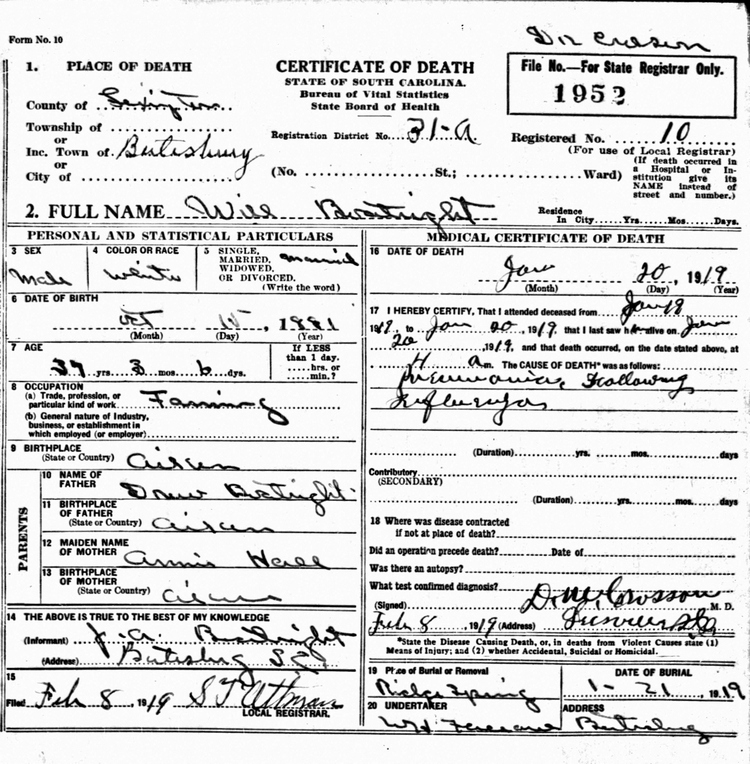 Form No. 10
1. PLACE OF DEATH
County of Lexington
Township of
or
Inc. Town of Batesburg
or
City of
CERTIFICATE OF DEATH
STATE OF SOUTH CAROLINA.
Bureau of Vital Statistics
State Board of Health
Registration District No. 31-A
(No. St.; Ward)
File No.—For State Registrar Only.
1952
Registered No. 10
(For use of Local Registrar)
(If death occurred in
a Hospital or In-
stitution give its
NAME instead of
street and number.)
2. FULL NAME Will Boatright
Residence
In City Yrs. Mos. Days.
PERSONAL AND STATISTICAL PARTICULARS
3 SEX
Male
4 COLOR OR RACE
White
5 SINGLE,
MARRIED,
WIDOWED,
OR DIVORCED.
(Write the word)
Married
6 DATE OF BIRTH
Oct 15, 1881
(Month) (Day) (Year)
7 AGE
37 yrs. 3 mos. 6 dys.
If LESS
than 1 day.
hrs. or
min.?
8 OCCUPATION
(a) Trade, profession, or
particular kind of work Farming
(b) General nature of Industry,
business, or establishment in
which employed (or employer)
9 BIRTHPLACE
(State or Country) Aiken
PARENTS
10 NAME OF
FATHER Drew Boatright
11 BIRTHPLACE
OF FATHER
(State or Country) Aiken
12 MAIDEN NAME
OF MOTHER Annis Hall
13 BIRTHPLACE
OF MOTHER
(State or Country) Aiken
14 THE ABOVE IS TRUE TO THE BEST OF MY KNOWLEDGE
(Informant) J. A. Boatright
(Address) Batesburg S.C.
15
Filed Feb 8 1919 LOCAL REGISTRAR.
MEDICAL CERTIFICATE OF DEATH
16 DATE OF DEATH
Jan 20, 1919
(Month) (Day) (Year)
17 I HEREBY CERTIFY, That I attended deceased from Jan 18
1919, to Jan 20, 1919, that I last saw him alive on Jan
20 1919, and that death occurred, on the date stated above, at
4 am. The CAUSE OF DEATH* was as follows:
Pneumonia, Following
Influenza
(Duration) yrs. mos. days
Contributory
(SECONDARY)
(Duration) yrs. mos. days
18 Where was disease contracted
if not at place of death?
Did an operation precede death? Date of
Was there an autopsy?
What test confirmed diagnosis?
(Signed) D. M. Crosson M. D.
Feb 8, 1919 (Address)
*State the Disease Causing Death, or, in deaths from Violent Causes state (1)
Means of Injury; and (2) whether Accidental, Suicidal or Homicidal.
19 Place of Burial or Removal
Ridge Spring
DATE OF BURIAL
1-21, 1919
20 UNDERTAKER
ADDRESS
Batesburg